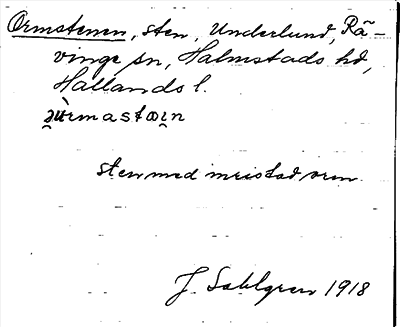 Ormstenen, sten, Underlund, Rä-
vinge sn, Halmstads hd,
Hallands l.
sten med inristad orm
J. Sahlgren 1918